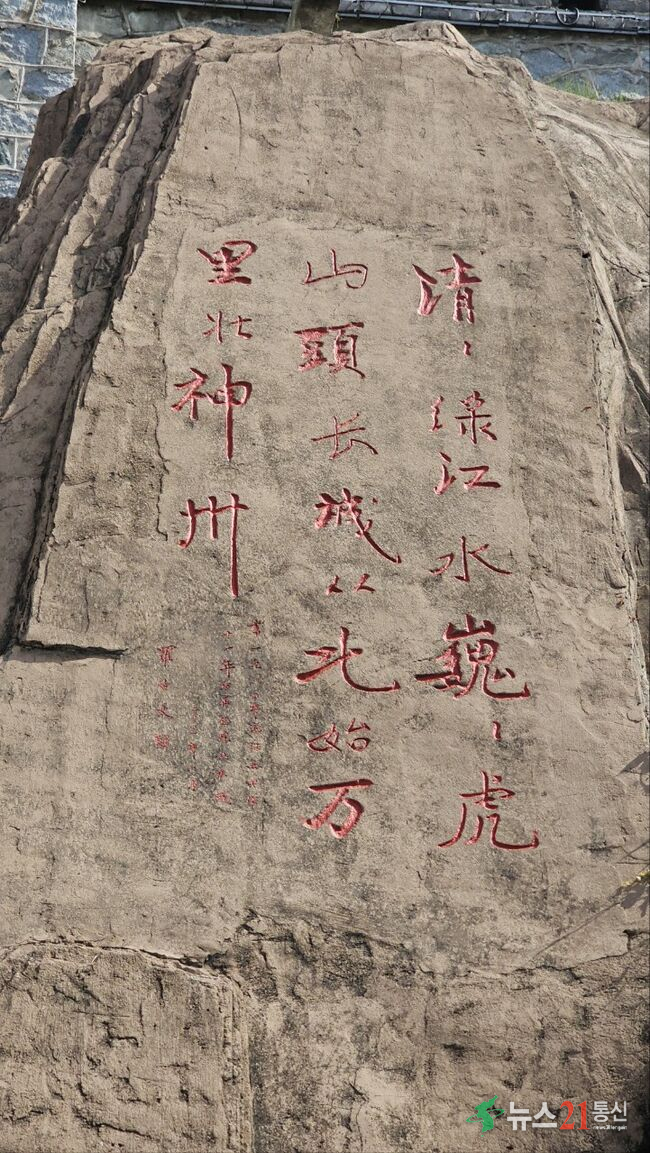 清〻绿江水巍〻虎
山頭长城从北始万
里壮神州
뉴스21통신